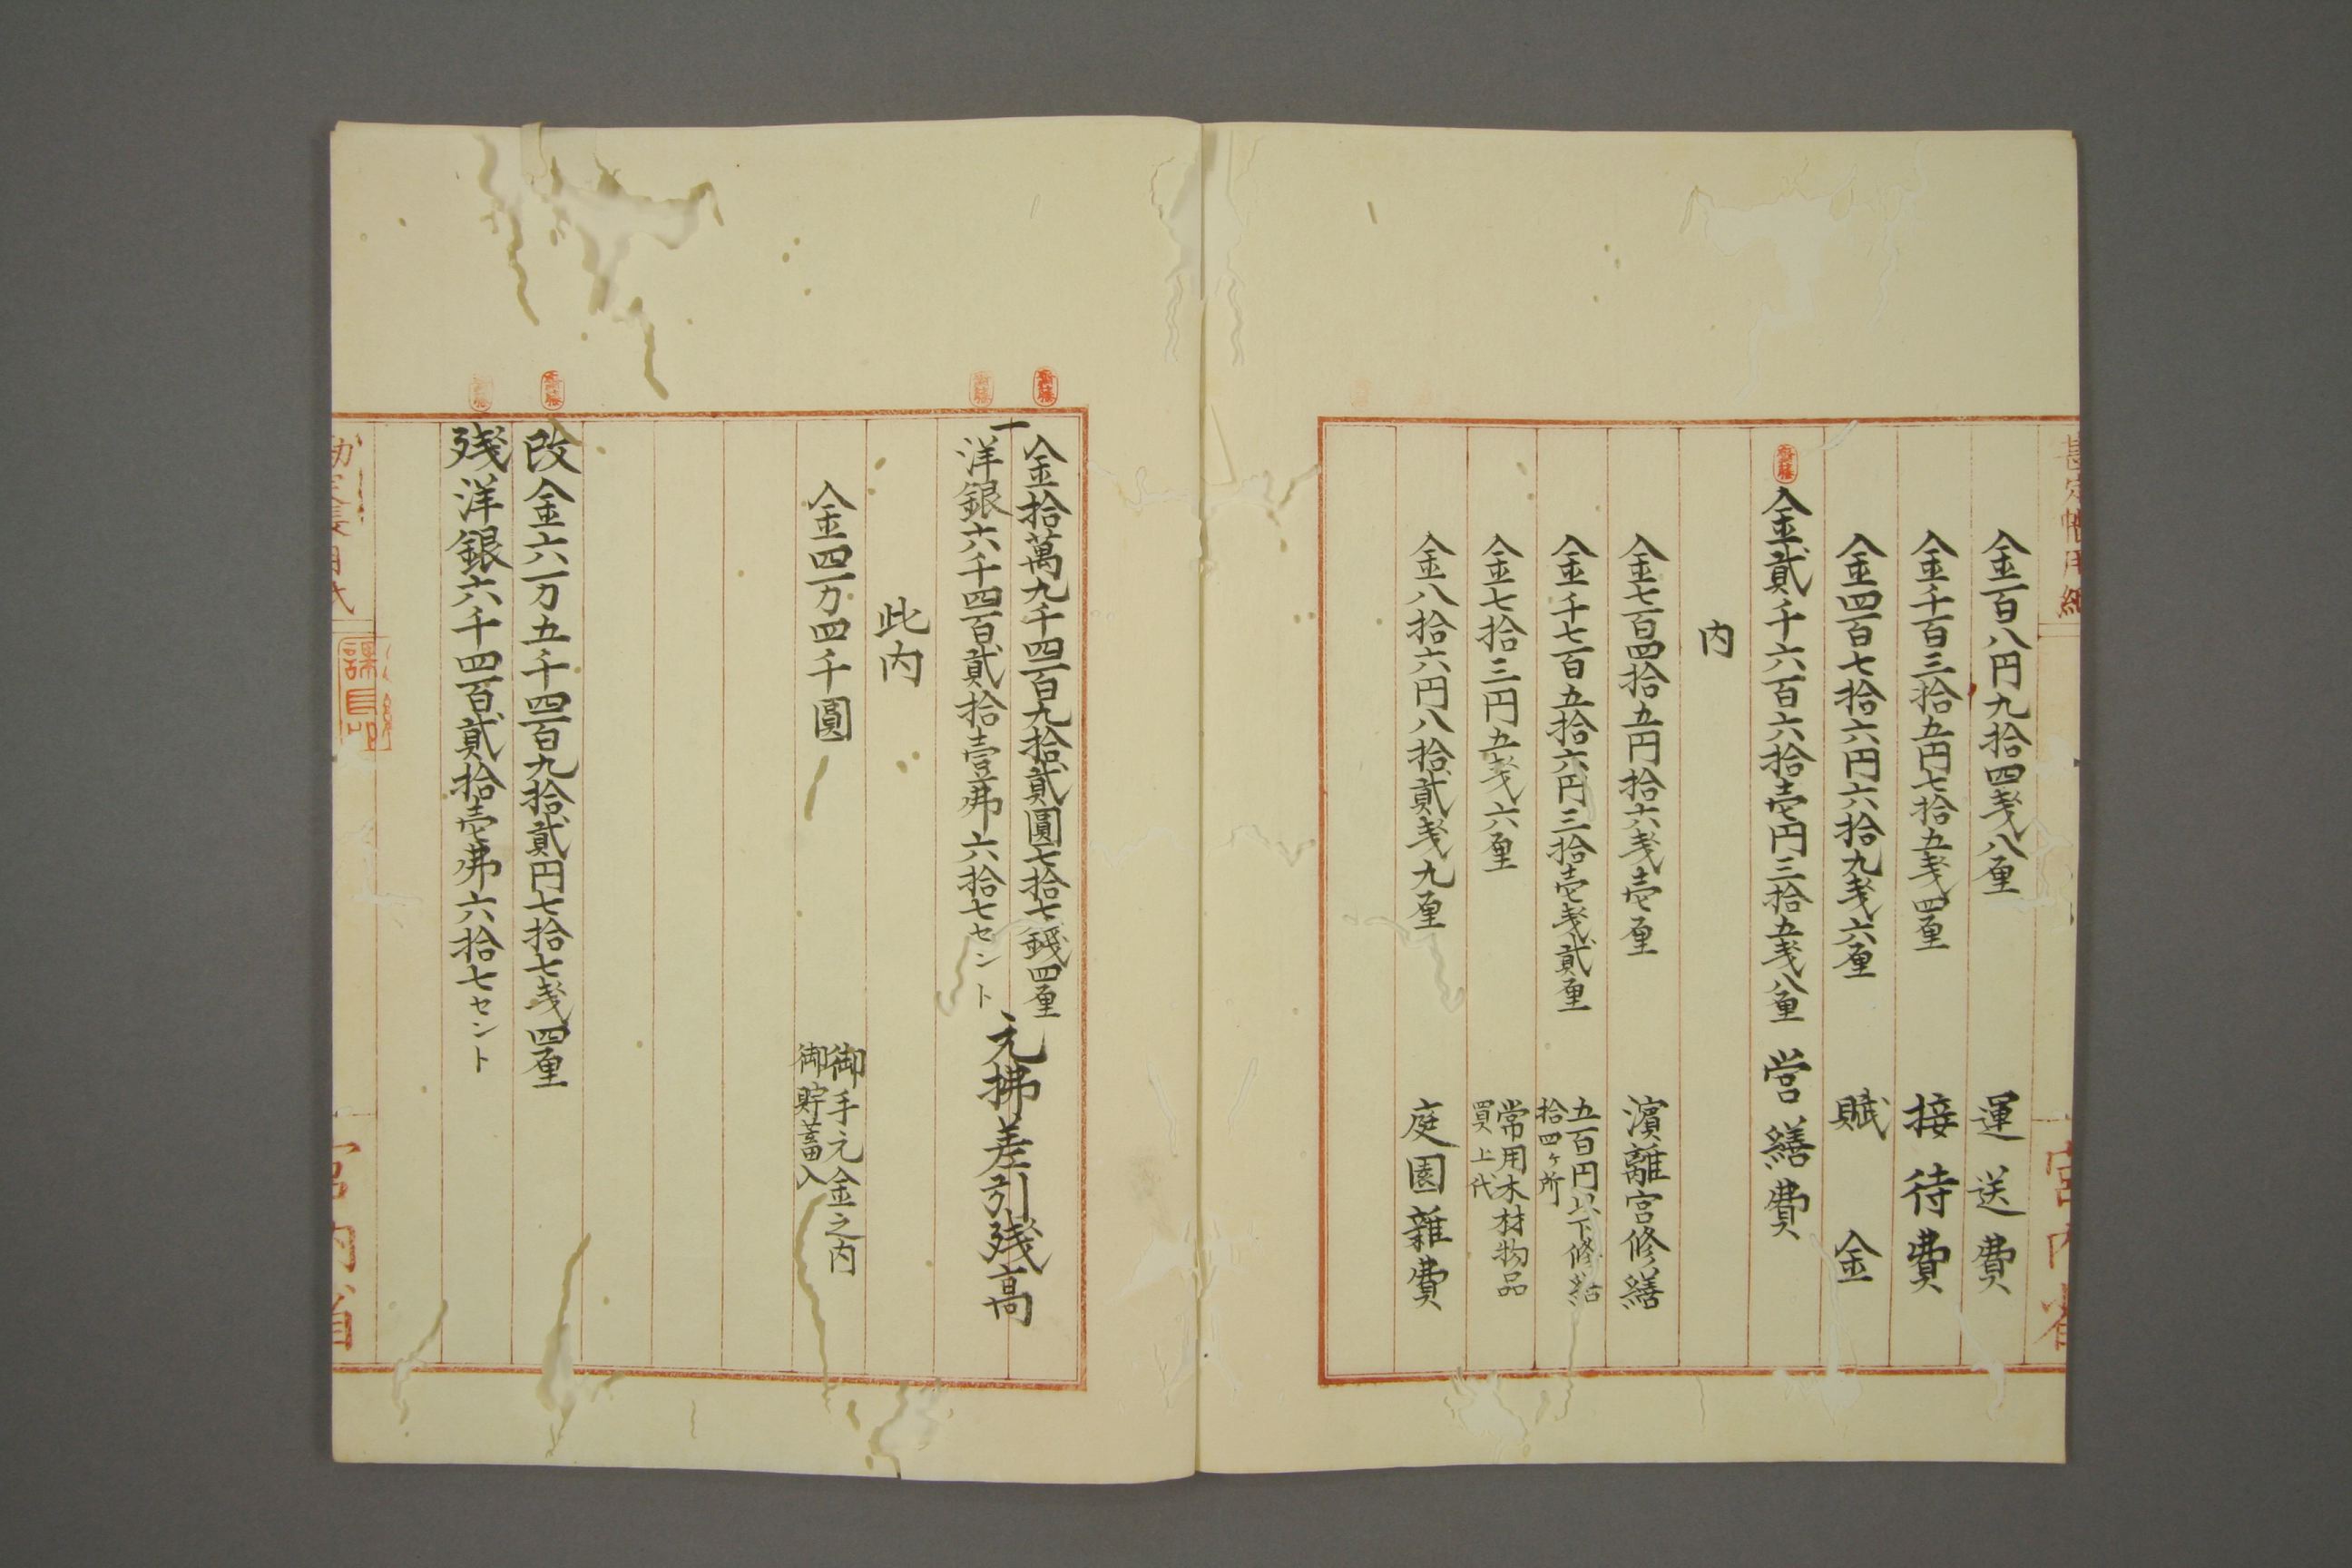 金百八円九拾四戋八厘　運送費
金千百三拾五円七拾五戋四厘　接待費
金四百七拾六円六拾九戋六厘　賦金
齋藤
金貳千六百六拾壱円三拾五戋八厘　営繕費
内
金七百四拾五円拾六戋壱厘　濱離宮修繕
金千七百五拾六円三拾壱戋貳厘　五百円以下修繕
拾四ヶ所
金七拾三円五戋六厘　常用木材物品
買上代
金八拾六円八拾貳戋九厘　庭園雜費
宮内省
齋藤
齋藤
一
金拾萬九千四百九拾貳圓七拾七錢四厘
洋銀六千四百貳拾壹弗六拾七セント
元拂差引残高
此内
金四万四千圓　御手元金之内
御貯蓄入
齋藤
改金六万五千四百九拾貳円七拾七戋四厘
齋藤
残洋銀六千四百貳拾壱弗六拾七セント
宮内省